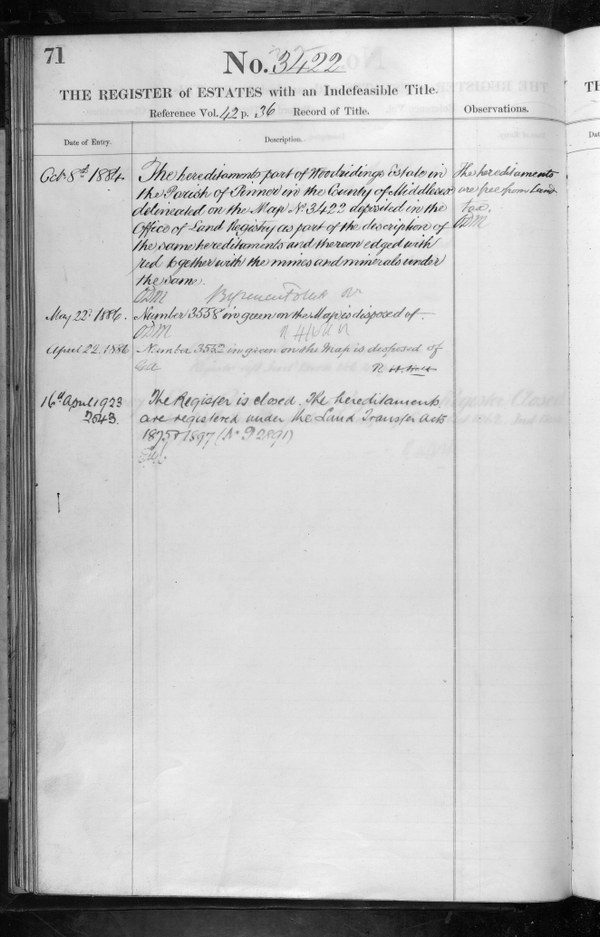 71
No. 3422
THE REGISTER of ESTATES with an Indefeasible Title.
Reference Vol. 42 p. 36 Record of Title.
Observations.
Date of Entry.
Description.
Oct. 8th 1884.
The hereditaments part of Woodridings Estate in
the Parish of Pinner in the County of Middlesex
delineated on the Map No. 3422 deposited in the
Office of Land Registry as part of the description of
the same hereditaments and thereon edged with
red together with the mines and minerals under
the same.
The hereditaments
are free from Land
tax.
May 22. 1886.
Number 3558 in green on the Map is disposed of
April 22. 1886
Number 3552 in green on the Map is disposed of
16th April 1923
The Register is closed. The hereditaments
2643.
are registered under the Land Transfer Acts
1875 & 1897 (No P 2891)